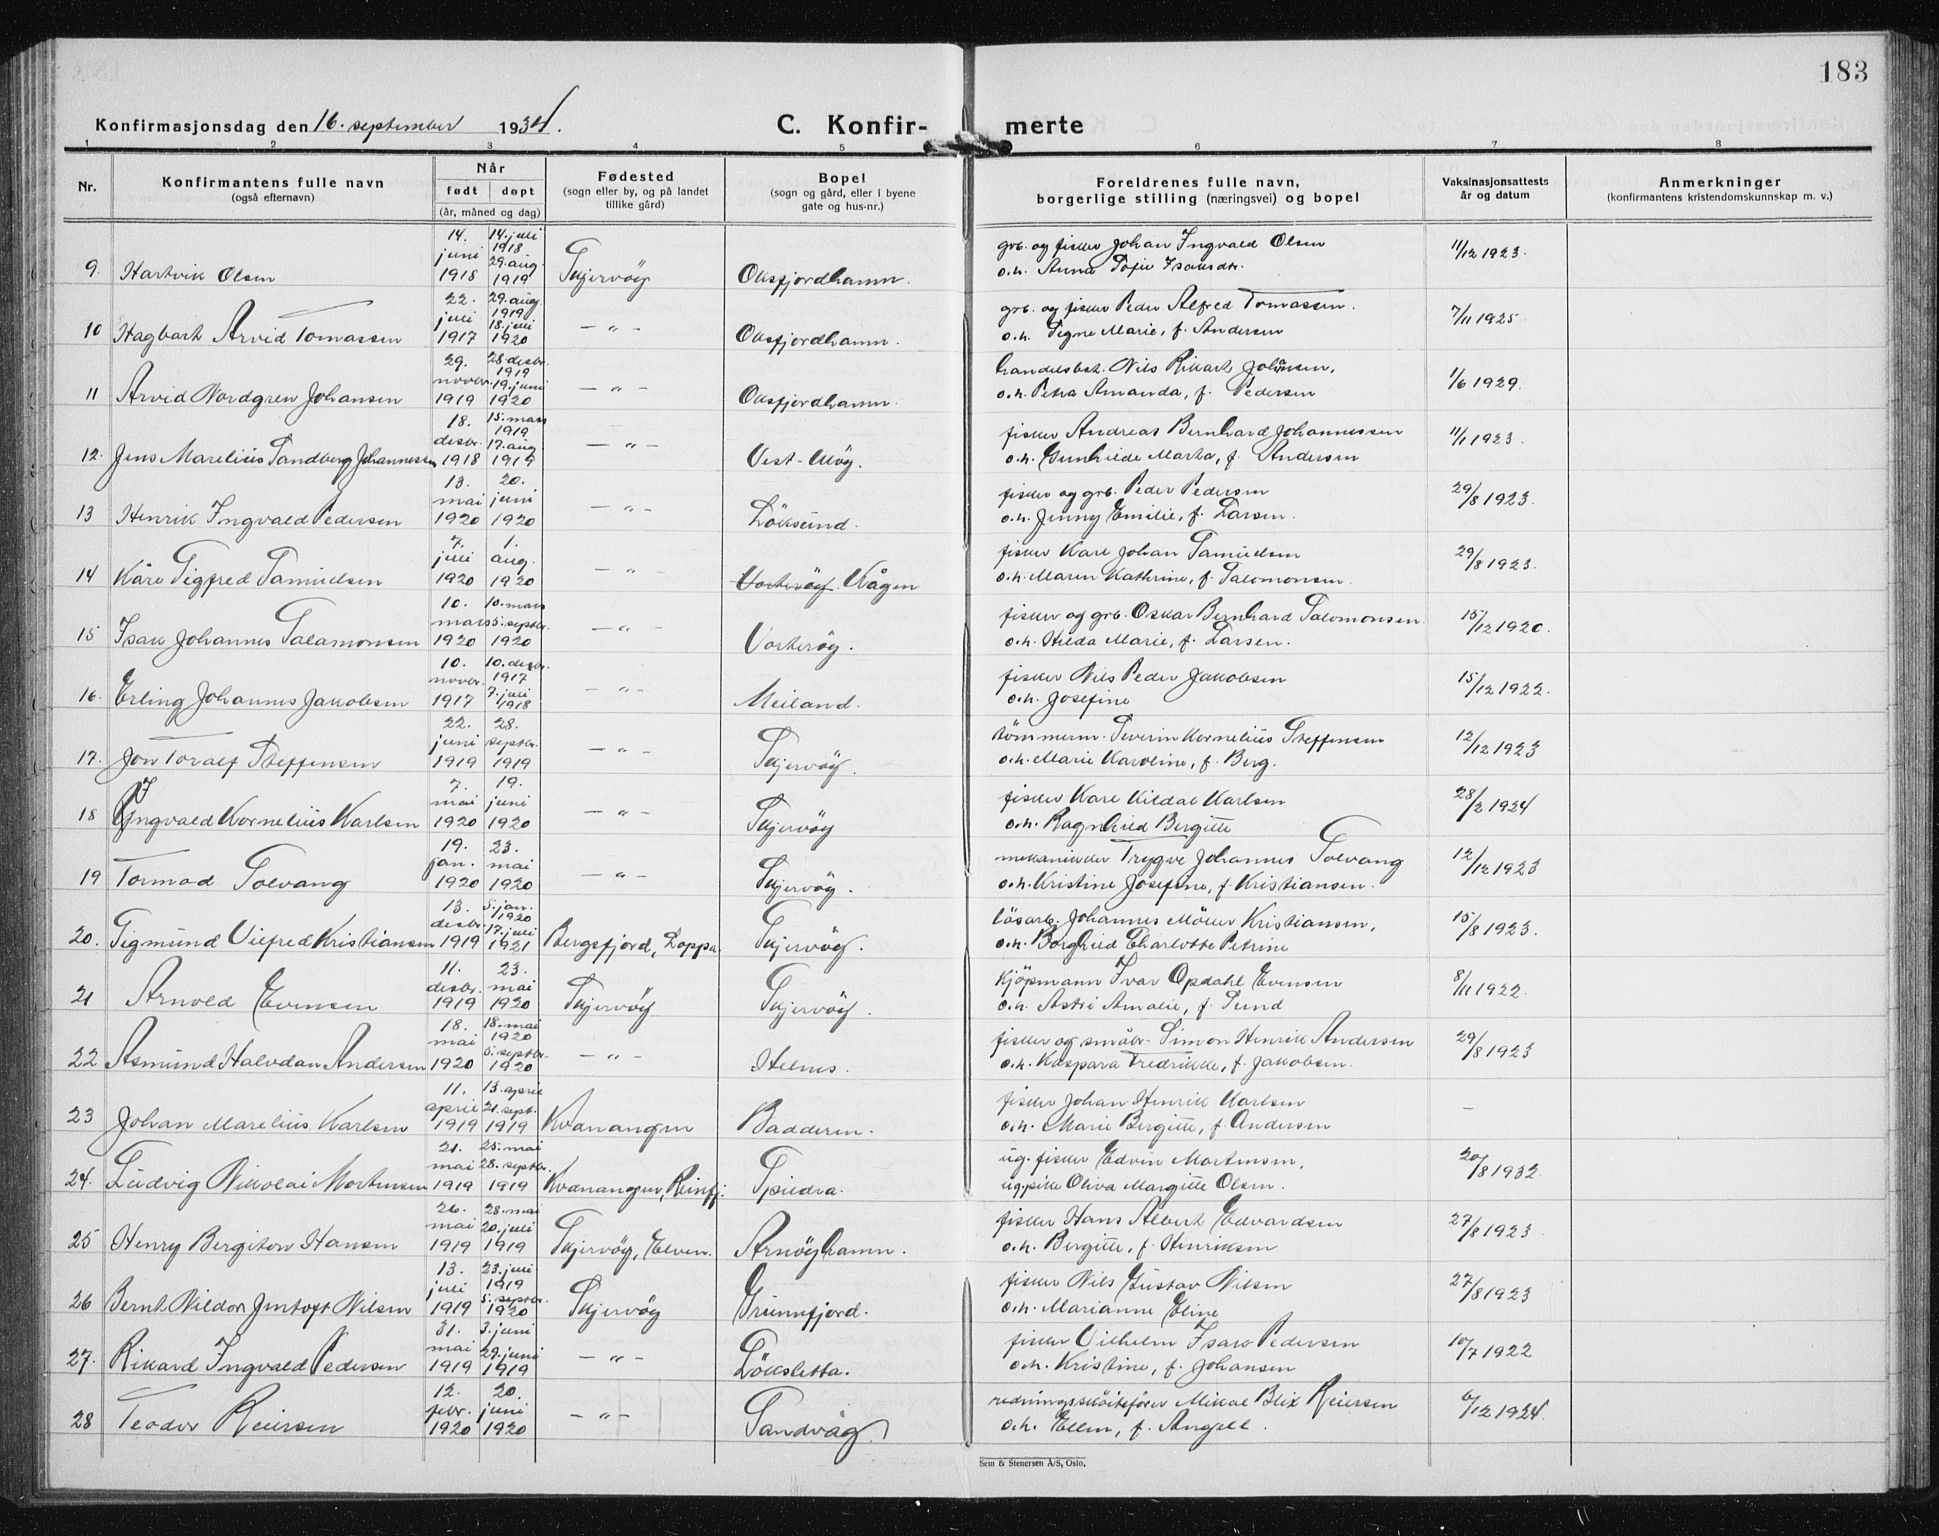 183
Konfirmasjonsdag den 16. september 1934.
C. Konfir-merte
1 2 3 4 5 6 7 8
Nr. Konfirmantens fulle navn (også efternavn) Når født døpt (år, måned og dag) Fødested (sogn eller by, og på landet tillike gård) Bopel (sogn og gård, eller i byene gate og hus-nr.) Foreldrenes fulle navn, borgerlige stilling (næringsvei) og bopel Vaksinasjonsattests år og datum Anmerkninger (konfirmantens kristendomskunnskap m. v.)
9. Hartvik Olsen 14. juni 1918 14. juli 1918 29. aug. 1919 Skjervøy Oksfjordhamn. grb. og fisker Johan Ingvald Olsen o.h. Anna Sofie Isaksdr. 11/12 1923.
10 Hagbart Arvid Tomassen 22. juli 1917 29. aug. 1919 18. juli 1920 — " — Oksfjordhamn. grb. og fisker Peder Alfred Tomassen. o.h. Signe Marie, f. Andersen 7/11 1925.
11 Arvid Nordgren Johansen 29. novbr. 1919 28. desbr. 1919 19. juni 1920 — " — Oksfjordhamn. handelsbet. Nils Rikart Johansen, o.h. Petra Amanda, f. Pedersen 1/6 1929.
12. Jens Marelius Sandberg Johannessen 18. desbr. 1918 15. mars 1919 17. aug. 1919 — " — Vest-Uløy. fisker Andreas Bernhard Johannessen o.h. Gunhilde Marta, f. Andersen 11/1 1923.
13 Henrik Ingvald Pedersen 13. mai 1920 20. juni 1920 — " — Løksund. fisker og grb. Peder Pedersen o.h. Jenny Emilie, f. Larsen. 29/8 1923.
14 Kåre Sigfred Samuelsen 7. juli 1920 1. aug. 1920 — " — Vorterøy Kågen fisker Kare Johan Samuelsen o.h. Maren Kathrine, f. Salomonsen. 29/8 1923.
15 Isak Johannes Salamonsen 10. mars 1920 10. mars 5. septbr. 1920 — " — Vorterøy. fisker og grb. Oskar Bernhard Salomonsen o.h. Hilda Marie, f. Larsen. 15/12 1920.
16. Erling Johannes Jakobsen 10. novbr. 1917 10. desbr. 1917 7. juli 1918 — " — Meiland. fisker Nils Peder Jakobsen o.h. Josefine 15/12 1922.
17. Jon Toralf Steffensen 22. juni 1919 28. septbr. 1919 — " — Skjervøy. tømmerm. Severin Kornelius Steffensen o.h. Marie Karoline, f. Berg. 12/12 1923
18 Ingvald Kornelius Karlsen 7. mai 1920 19. juni 1920 — " — Skjervøy fisker Kare Kildal Karlsen o.h. Ragnhild Bergitte 28/2 1924
19 Tormod Solvang 19. jan. 1920 23. mai 1920 — " — Skjervøy. mekaniker Trygve Johannes Solvang o.h. Kristine Josefine, f. Kristiansen. 12/12 1923
20. Sigmund Vilfred Kristiansen 13. desbr. 1919 5. jan. 1920 17. juli 1921 Bergsfjord, Loppa. Skjervøy. løsarb. Johannes Møller Kristiansen, o.h. Borghild Charlotte Petrine 15/8 1923.
21 Arnold Evensen 11. desbr. 1919 23. mai 1920 Skjervøy Skjervøy. kjøpmann Ivar Opdahl Evensen o.h. Astri Amalie, f. Sund 8/11 1922.
22 Asmund Halvdan Andersen 18. mai 1920 18. mai 1920 5. septbr. 1920 — " — Helnes. fisker og småbr. Simon Henrik Andersen o.h. Kaspara Fredrikke, f. Jakobsen. 29/8 1923
23 Johan Marelius Karlsen 11. april 1919 13. april 21. sept. 1919 Kvænangen Badderen. fisker Johan Henrik Karlsen o.h. Marie Bergitte, f. Andersen —
24. Ludvig Nikolai Mortensen 21. mai 1919 25. mai 28. septbr. 1919 Kvænangen, Reinfj. Spildra. ug. fisker Edvin Mortensen, ug. pike Oliva Margitte Olsen. 20/8 1932.
25 Henry Bergiton Hansen 26. mai 1919 28. mai 20. juli 1919 Skjervøy, Elven. Arnøyhamn. fisker Hans Albert Edvardsen o.h. Bergitte, f. Henriksen 27/8 1923
26 Bernt Nildor Jentoft Nilsen 13. juli 1919 23. juli 1919 5. septbr. 1920 Skjervøy Grunnfjord. fisker Nils Gustav Nilsen o.h. Marianne Eline 27/8 1923
27. Rikard Ingvald Pedersen 31. mai 1919 3. juni 29. juni 1919 — " — Løksletta. fisker Vilhelm Isak Pedersen o.h. Kristine, f. Johansen 10/7 1922
28 Teodor Reiersen 12. febr. 1920 20. juni 1920 — " — Sandvåg. redningsskøitefører Mikal Blix Reiersen o.h. Ellen, f. Angell. 6/12 1924.
Sem & Stenersen A/S, Oslo.